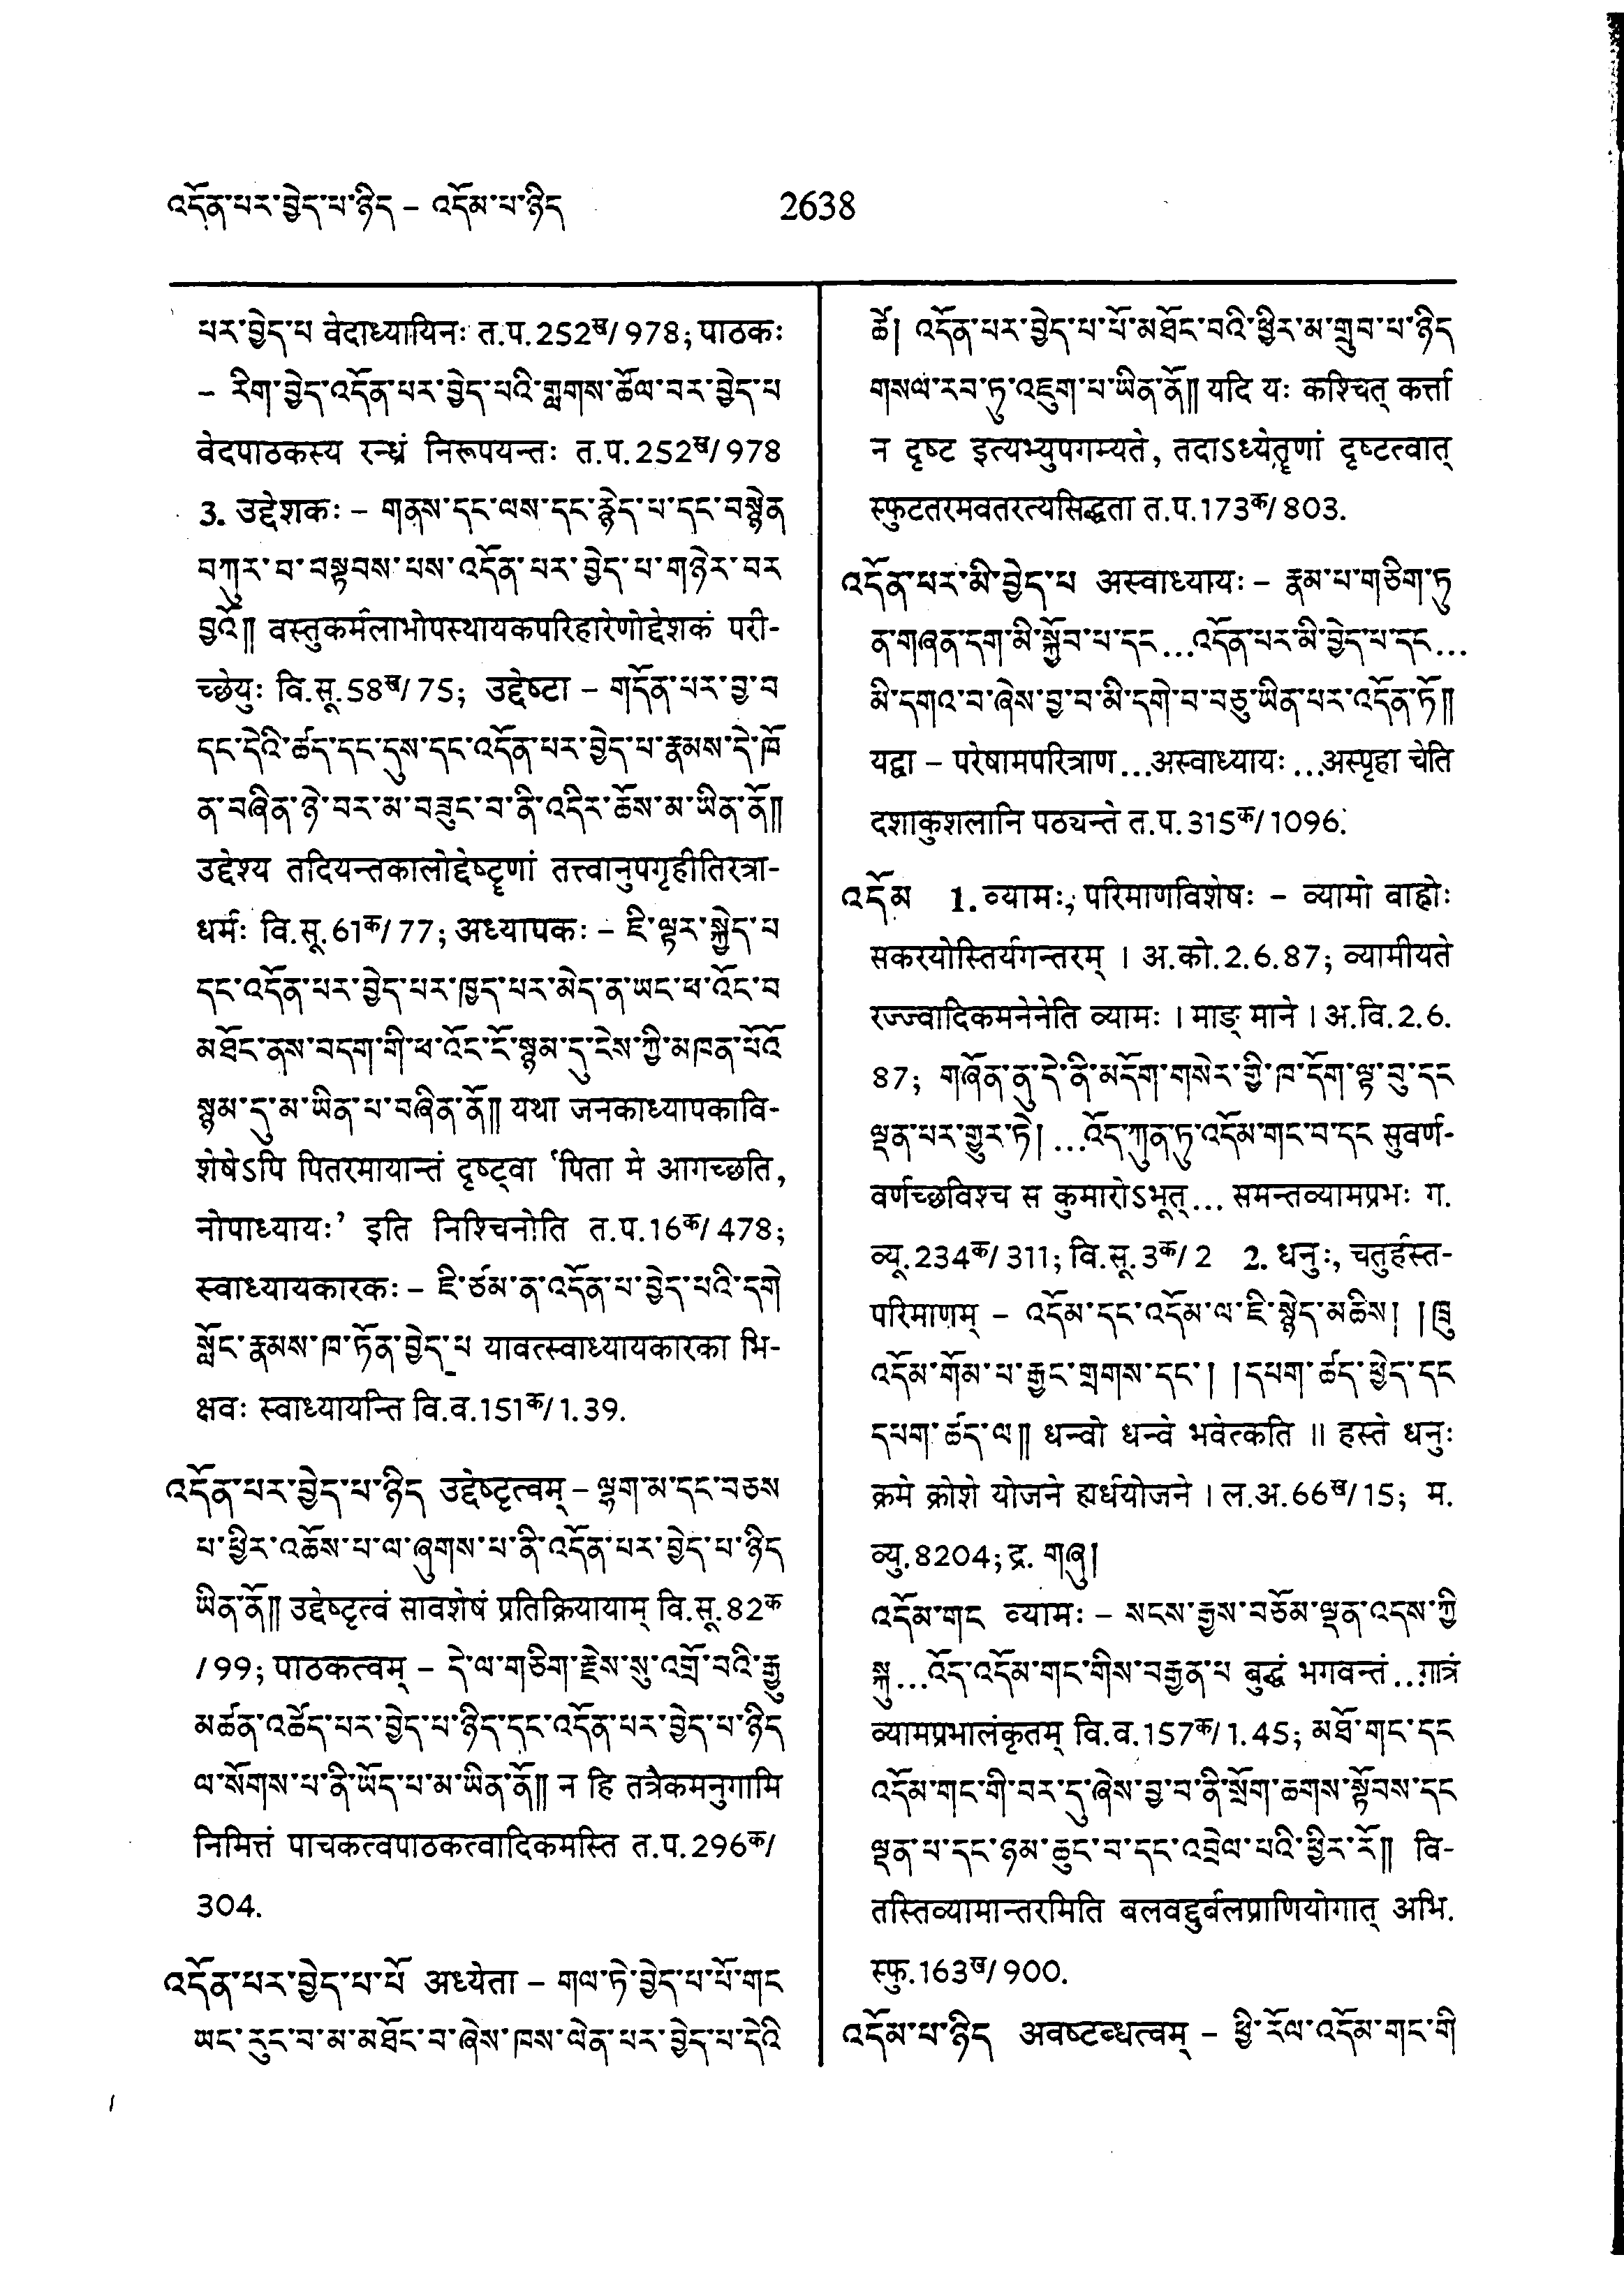 འདོན་པར་བྱེད་པ་ཉིད – འདོམ་པ་ཉིད
2638
པར་བྱེད་པ वेदाध्यायिनः त.प.252ख/978; पाठकः
– རིག་བྱེད་འདོན་པར་བྱེད་པའི་གླགས་ཚོལ་བར་བྱེད་པ
वेदपाठकस्य रन्ध्रं निरूपयन्तः त.प.252ख/978
3. उद्देशकः – གནས་དང་ལས་དང་རྙེད་པ་དང་བསྙེན
བཀུར་བ་བསྟབས་པས་འདོན་པར་བྱེད་པ་གཉེར་བར
བྱའོ༎ वस्तुकर्मलाभोपस्थायकपरिहारेणोद्देशकं परी-
च्छेयुः वि.सू.58ख/75; उद्देष्टा – གདོན་པར་བྱ་བ
དང་དེའི་ཚད་དང་དུས་དང་འདོན་པར་བྱེད་པ་རྣམས་དེ་ཁོ
ན་བཞིན་ཉེ་བར་མ་བཟུང་བ་ནི་འདིར་ཆོས་མ་ཡིན་ནོ༎
उद्देश्य तदियन्तकालोद्देष्टॄणां तत्त्वानुपगृहीतिरत्रा-
धर्मः वि.सू.61क/77; अध्यापकः – ཇི་ལྟར་སྐྱེད་པ
དང་འདོན་པར་བྱེད་པར་ཁྱད་པར་མེད་ན་ཡང་ཕ་འོང་བ
མཐོང་ནས་བདག་གི་ཕ་འོང་ངོ་སྙམ་དུ་ངེས་ཀྱི་མཁན་པོའོ
སྙམ་དུ་མ་ཡིན་པ་བཞིན་ནོ༎ यथा जनकाध्यापकावि-
शेषेऽपि पितरमायान्तं दृष्ट्वा ‘पिता मे आगच्छति,
नोपाध्यायः’ इति निश्चिनोति त.प.16क/478;
स्वाध्यायकारकः – ཇི་ཙམ་ན་འདོན་པ་བྱེད་པའི་དགེ
སློང་རྣམས་ཁ་ཏོན་བྱེད་པ यावत्स्वाध्यायकारका भि-
क्षवः स्वाध्यायन्ति वि.व.151क/1.39.
འདོན་པར་བྱེད་པ་ཉིད उद्देष्टृत्वम् – ལྷག་མ་དང་བཅས
པ་ཕྱིར་འཆོས་པ་ལ་ཞུགས་པ་ནི་འདོན་པར་བྱེད་པ་ཉིད
ཡིན་ནོ༎ उद्देष्टृत्वं सावशेषं प्रतिक्रियायाम् वि.सू.82क
/99; पाठकत्वम् – དེ་ལ་གཅིག་རྗེས་སུ་འགྲོ་བའི་རྒྱུ
མཚན་འཚོད་པར་བྱེད་པ་ཉིད་དང་འདོན་པར་བྱེད་པ་ཉིད
ལ་སོགས་པ་ནི་ཡོད་པ་མ་ཡིན་ནོ༎ न हि तत्रैकमनुगामि
निमित्तं पाचकत्वपाठकत्वादिकमस्ति त.प.296क/
304.
འདོན་པར་བྱེད་པ་པོ अध्येता – གལ་ཏེ་བྱེད་པ་པོ་གང
ཡང་རུང་བ་མ་མཐོང་བ་ཞེས་ཁས་ལེན་པར་བྱེད་པ་དེའི
ཚེ། འདོན་པར་བྱེད་པ་པོ་མཐོང་བའི་ཕྱིར་མ་གྲུབ་པ་ཉིད
གསལ་རབ་ཏུ་འཇུག་པ་ཡིན་ནོ༎ यदि यः कश्चित् कर्त्ता
न दृष्ट इत्यभ्युपगम्यते, तदाऽध्येतॄणां दृष्टत्वात्
स्फुटतरमवतरत्यसिद्धता त.प.173क/803.
འདོན་པར་མི་བྱེད་པ अस्वाध्यायः – རྣམ་པ་གཅིག་ཏུ
ན་གཞན་དག་མི་སྐྱོབ་པ་དང...འདོན་པར་མི་བྱེད་པ་དང...
མི་དགའ་བ་ཞེས་བྱ་བ་མི་དགེ་བ་བཅུ་ཡིན་པར་འདོན་ཏོ༎
यद्वा – परेषामपरित्राण...अस्वाध्यायः...अस्पृहा चेति
दशाकुशलानि पठ्यन्ते त.प.315क/1096.
འདོམ 1. व्यामः, परिमाणविशेषः – व्यामो वाहोः
सकरयोस्तिर्यगन्तरम् । अ.को.2.6.87; व्यामीयते
रज्ज्वादिकमनेनेति व्यामः । माङ् माने । अ.वि.2.6.
87; གཞོན་ནུ་དེ་ནི་མདོག་གསེར་གྱི་ཁ་དོག་ལྟ་བུ་དང
ལྡན་པར་གྱུར་ཏེ། ...འོད་ཀུན་ཏུ་འདོམ་གང་བ་དང सुवर्ण-
वर्णच्छविश्च स कुमारोऽभूत्... समन्तव्यामप्रभः ग.
व्यू.234क/311; वि.सू.3क/2 2. धनुः, चतुर्हस्त-
परिमाणम् – འདོམ་དང་འདོམ་ལ་ཇི་སྙེད་མཆིས། །ཁྲུ
འདོམ་གོམ་པ་རྒྱང་གྲགས་དང་། །དཔག་ཚད་ཕྱེད་དང
དཔག་ཚད་ལ༎ धन्वो धन्वे भवेत्कति ॥ हस्ते धनुः
क्रमे क्रोशे योजने ह्यर्धयोजने । ल.अ.66ख/15; म.
व्यु.8204; द्र. གཞུ།
འདོམ་གང व्यामः – སངས་རྒྱས་བཅོམ་ལྡན་འདས་ཀྱི
སྐུ...འོད་འདོམ་གང་གིས་བརྒྱན་པ बुद्धं भगवन्तं...गात्रं
व्यामप्रभालंकृतम् वि.व.157क/1.45; མཐོ་གང་དང
འདོམ་གང་གི་བར་དུ་ཞེས་བྱ་བ་ནི་སྲོག་ཆགས་སྟོབས་དང
ལྡན་པ་དང་ཉམ་ཆུང་བ་དང་འབྲེལ་པའི་ཕྱིར་རོ༎ वि-
तस्तिव्यामान्तरमिति बलवद्दुर्बलप्राणियोगात् अभि.
स्फु.163ख/900.
འདོམ་པ་ཉིད अवष्टब्धत्वम् – ཕྱི་རོལ་འདོམ་གང་གི